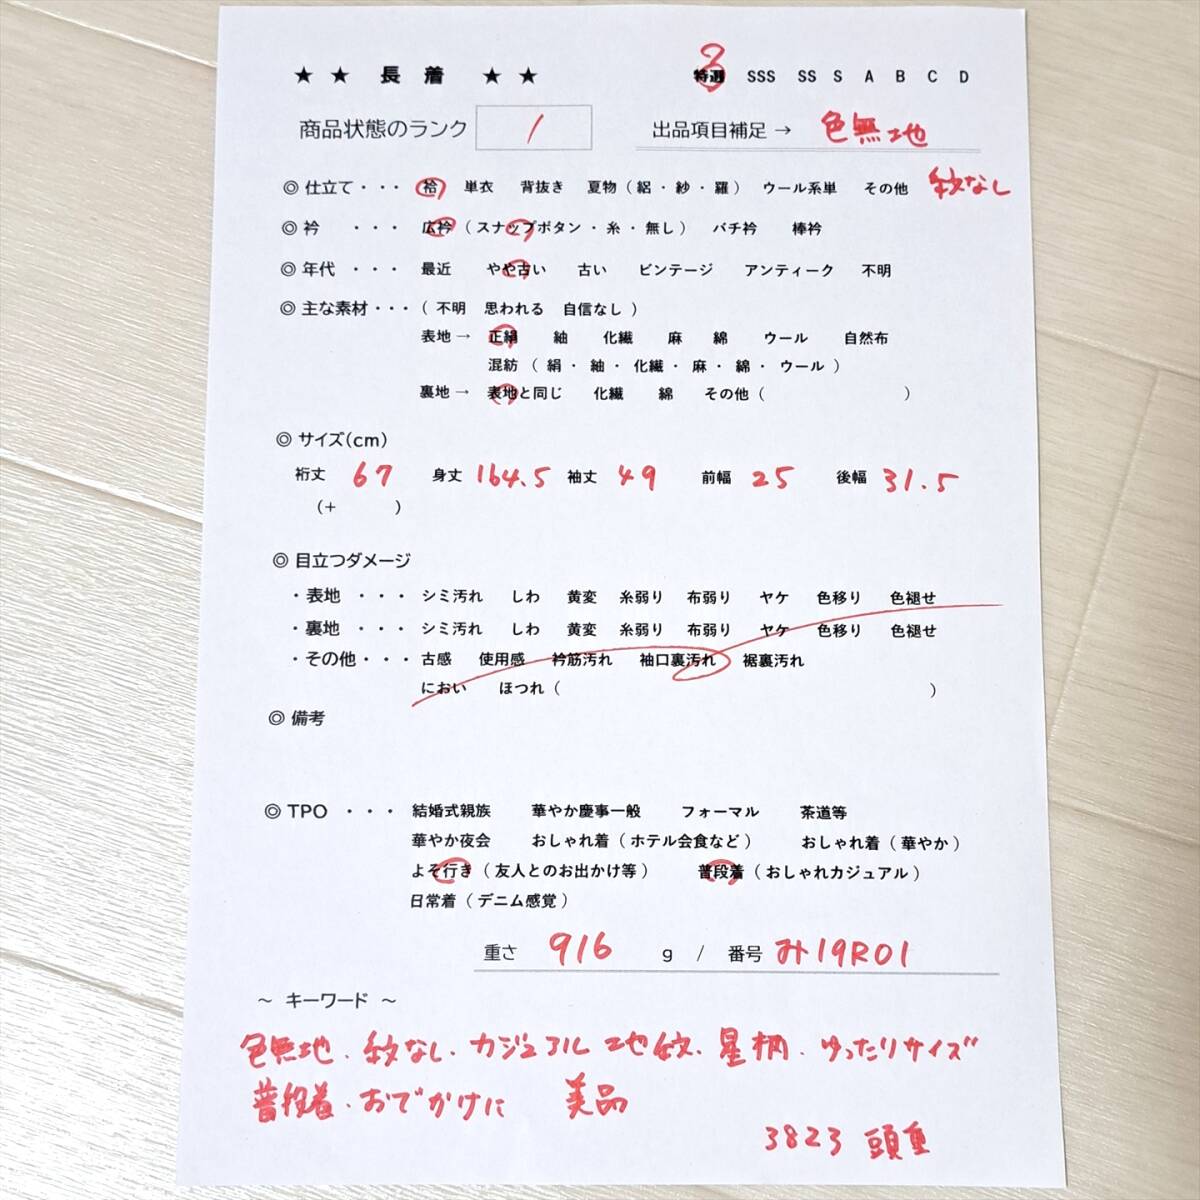 ★ ★ 長 着 ★ ★ 特選 SSS SS S A B C D
3
商品状態のランク 1 出品項目補足 → 色無地
◎ 仕立て ・・・ 袷 単衣 背抜き 夏物 ( 絽 ・ 紗 ・ 羅 ) ウール系単 その他 紋なし
◎ 衿 ・・・ 広衿 ( スナップボタン ・ 糸 ・ 無し ) バチ衿 棒衿
◎ 年代 ・・・ 最近 やや古い 古い ビンテージ アンティーク 不明
◎ 主な素材 ・・・ ( 不明 思われる 自信なし )
表地 → 正絹 紬 化繊 麻 綿 ウール 自然布
混紡 ( 絹 ・ 紬 ・ 化繊 ・ 麻 ・ 綿 ・ ウール )
裏地 → 表地と同じ 化繊 綿 その他 ( )
◎ サイズ(cm)
裄丈 67 身丈 164.5 袖丈 49 前幅 25 後幅 31.5
(+ )
◎ 目立つダメージ
・ 表地 ・・・ シミ汚れ しわ 黄変 糸弱り 布弱り ヤケ 色移り 色褪せ
・ 裏地 ・・・ シミ汚れ しわ 黄変 糸弱り 布弱り ヤケ 色移り 色褪せ
・ その他 ・・・ 古感 使用感 衿筋汚れ 袖口裏汚れ 裾裏汚れ
におい ほつれ ( )
◎ 備考
◎ TPO ・・・ 結婚式親族 華やか慶事一般 フォーマル 茶道等
華やか夜会 おしゃれ着 ( ホテル会食など ) おしゃれ着 ( 華やか )
よそ行き ( 友人とのお出かけ等 ) 普段着 ( おしゃれカジュアル )
日常着 ( デニム感覚 )
重さ 916 g / 番号 み19R01
～ キーワード ～
色無地・紋なし・カジュアル 地紋・星柄・ゆったりサイズ
普段着・おでかけに 美品
3823 頭重